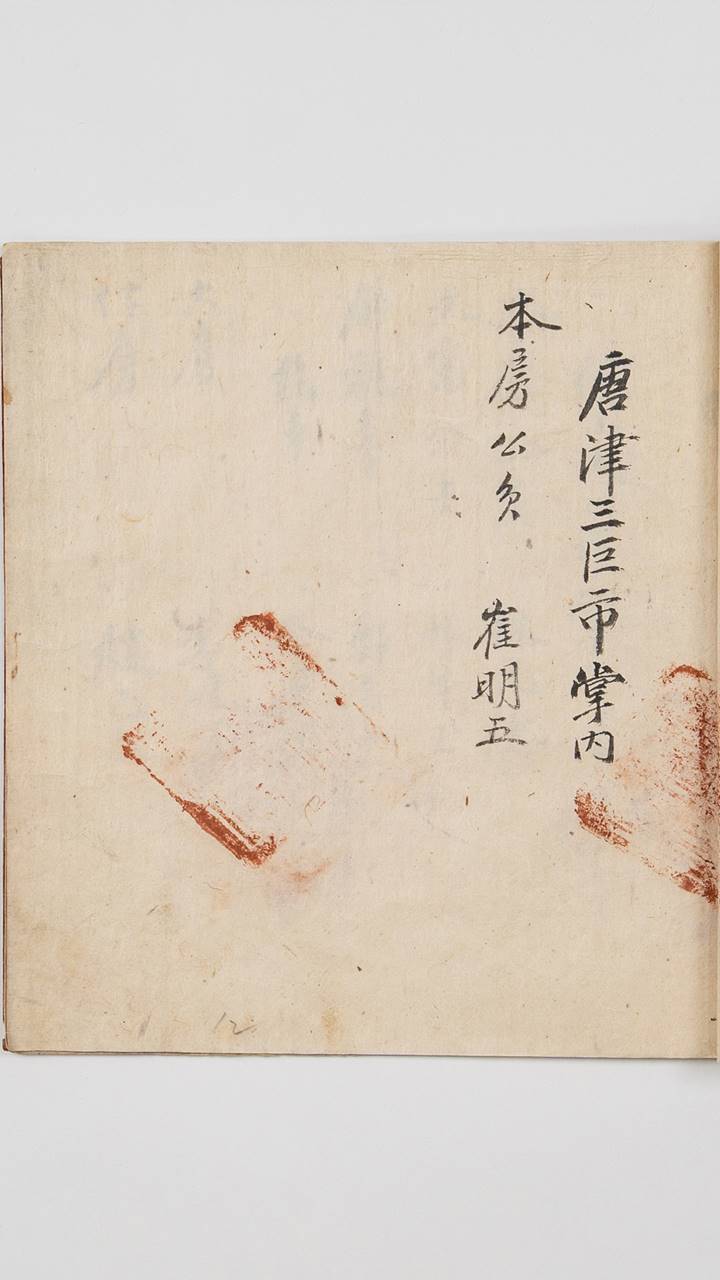 唐津三巨市掌內
本房公員 崔明五
12